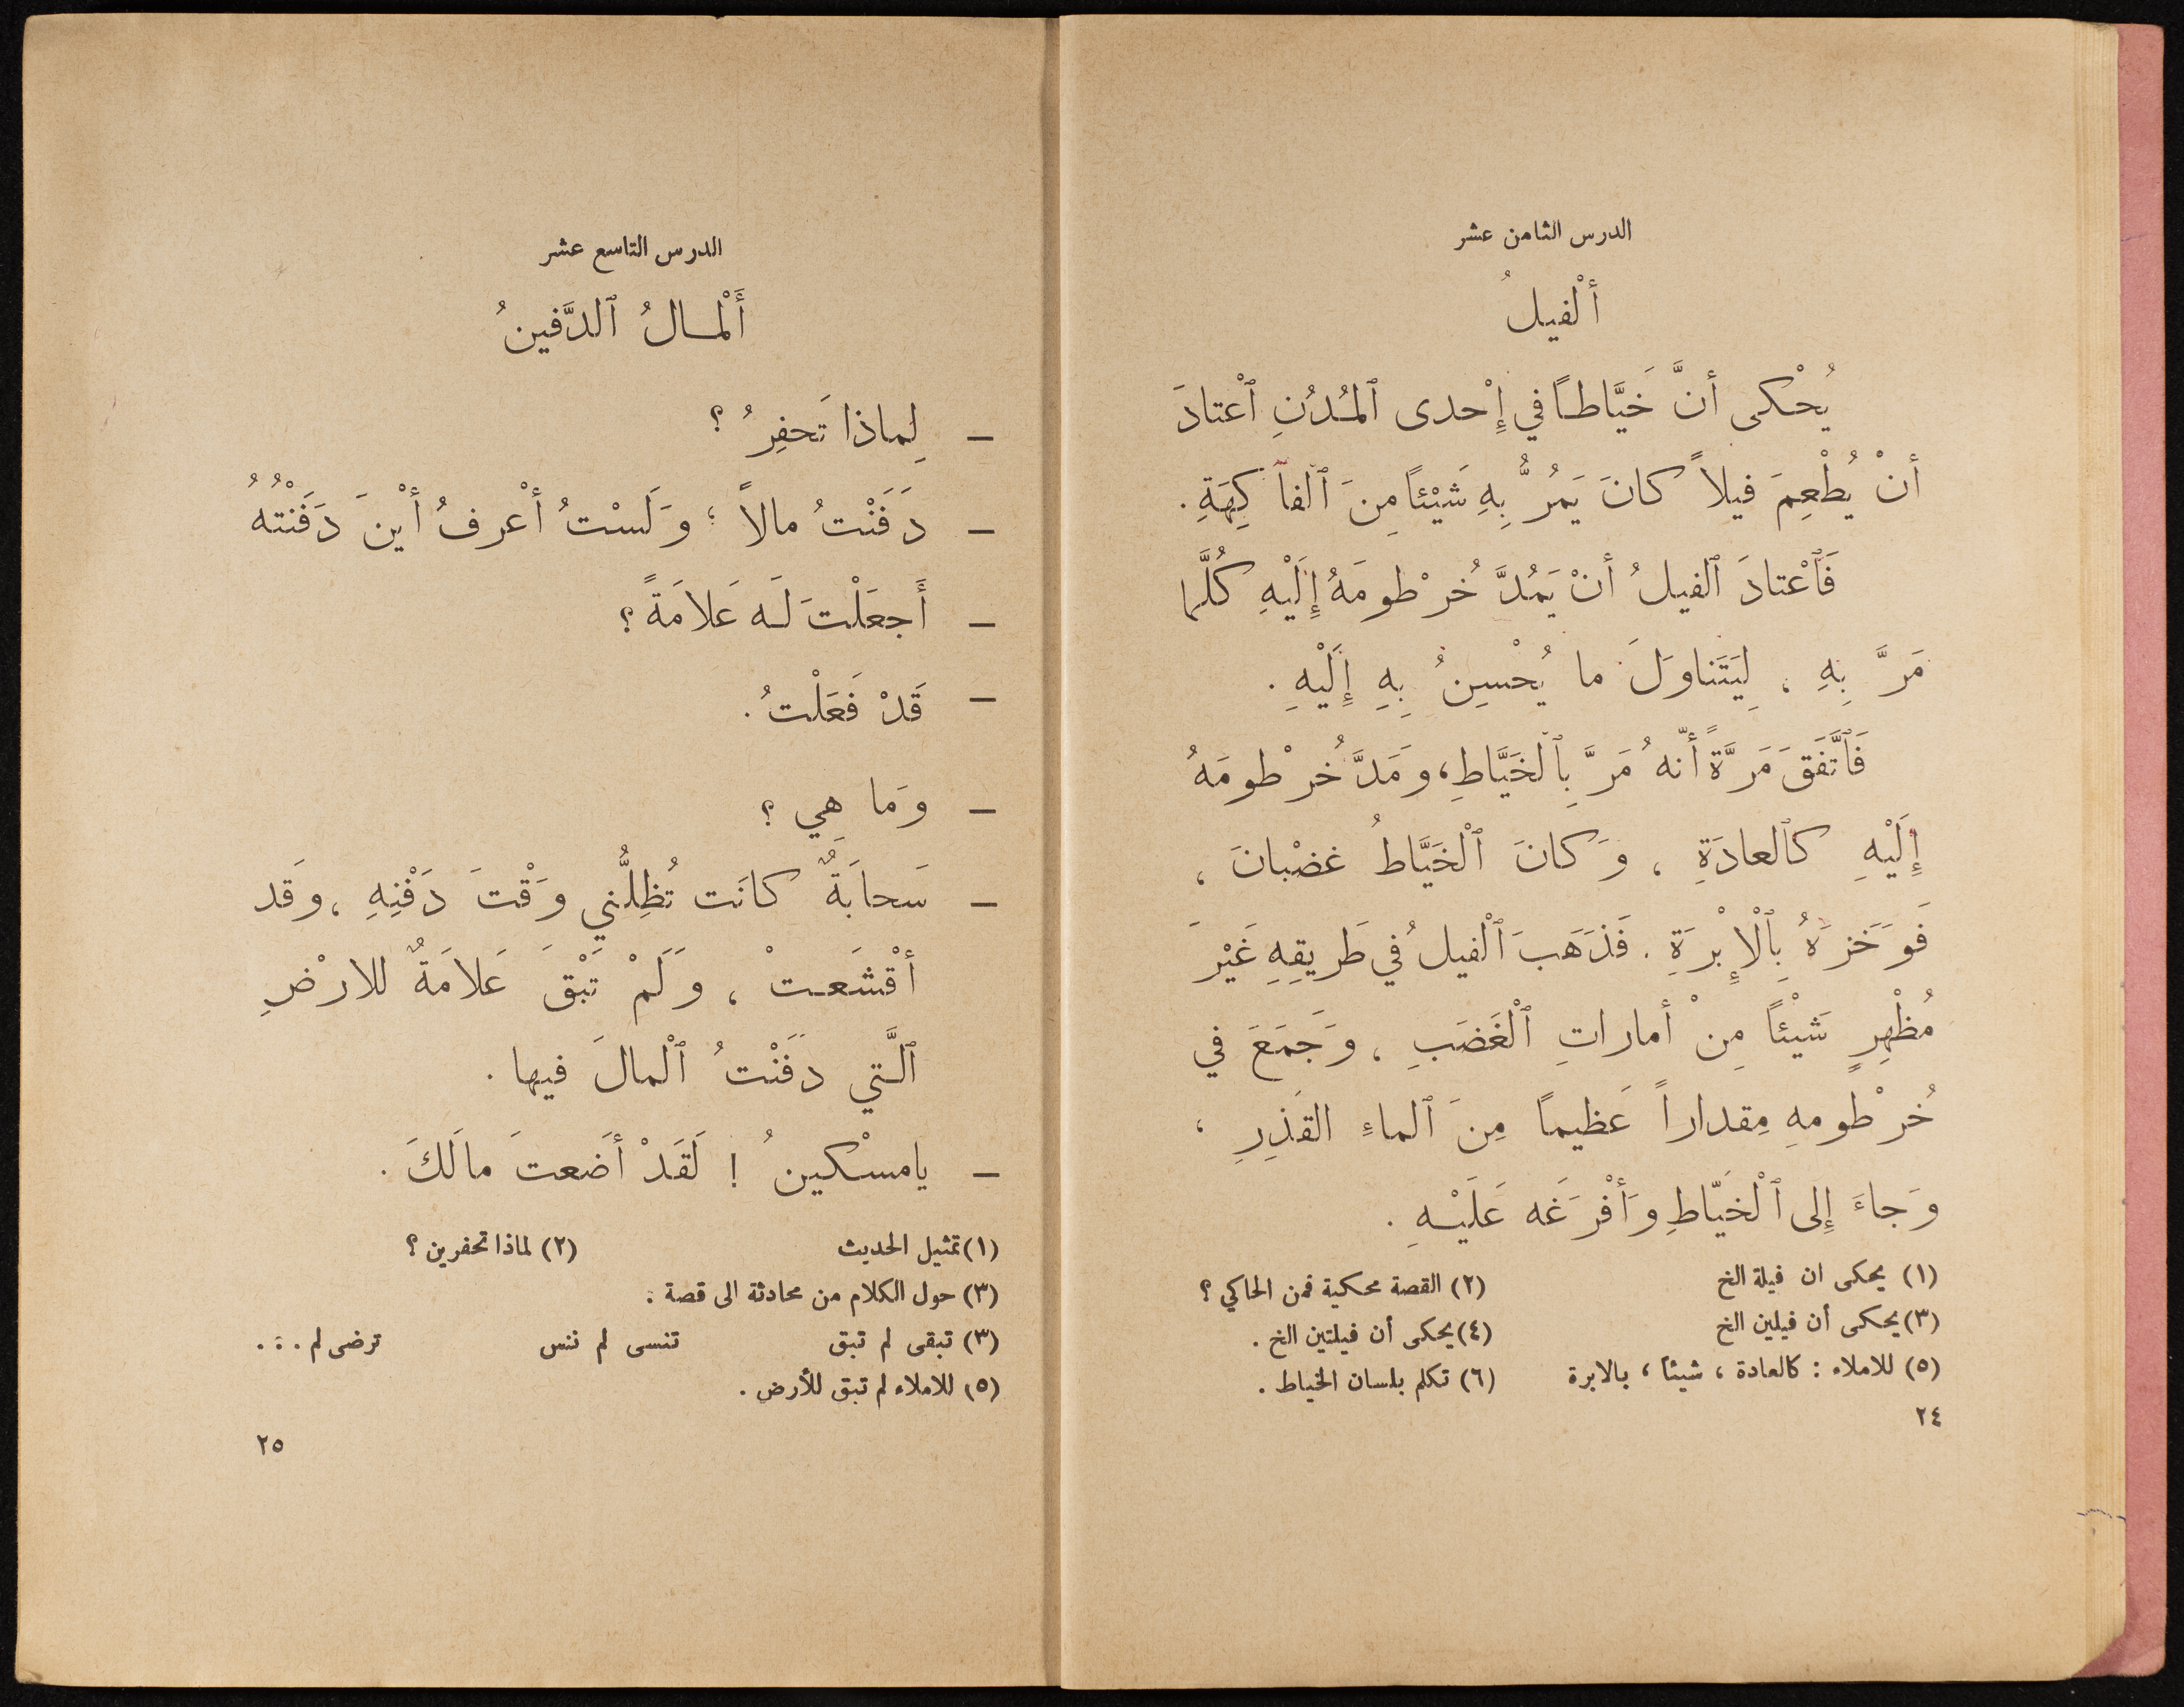 الدرس الثامن عشر
أَلْفيلُ
يُحْكى أنَّ خَيَّاطاً في إِحْدى ٱلمُدُنِ ٱعْتادَ
أنْ يُطْعِمَ فيلاً كانَ يَمُرُّ بِهِ شَيْئاً مِنَ ٱلفاكِهَةِ.
فَٱعْتادَ ٱلفيلُ أنْ يَمُدَّ خُرْطومَهُ إِلَيْهِ كُلَّما
مَرَّ بِهِ ، لِيَتَناوَلَ ما يُحْسِنُ بِهِ إِلَيْهِ .
فَٱتَّفَقَ مَرَّةً أنّهُ مَرَّ بِٱلخَيَّاطِ، ومَدَّ خُرْطومَهُ
إِلَيْهِ كٱلعادَةِ ، وَكانَ ٱلْخَيَّاطُ غضْبانَ ،
فَوَخَزَهُ بِٱلْإِبْرَةِ . فَذَهَبَ ٱلْفيلُ في طَريقِهِ غَيْرَ
مُظْهِرٍ شَيْئاً مِنْ أماراتِ ٱلْغَضَبِ ، وَجَمَعَ في
خُرْطومهِ مِقداراً عَظيماً مِنَ ٱلماءِ القَذِرِ ،
وَجاءَ إِلى ٱلْخَيّاطِ وَأفْرَغَه عَلَيْهِ .
(١) يحكى ان فيلة الخ (٢) القصة محكية فمن الحاكي ؟
(٣) يحكى أن فيلين الخ (٤) يحكى أن فيلتين الخ .
(٥) للاملاء : كالعادة ، شيئاً ، بالابرة (٦) تكلم بلسان الخياط .
٢٤
الدرس التاسع عشر
أَلْمالُ ٱلدَّفينُ
– لِماذا تَحفِرُ ؟
– دَفَنْتُ مالاً ؛ وَلَسْتُ أعْرفُ أيْنَ دَفَنْتُهُ
– أَجعَلْتَ لَه عَلامَةً ؟
– قَدْ فَعَلْتُ .
– وَما هِي ؟
– سَحابَةٌ كانَت تُظِلُّني وَقْتَ دَفْنِهِ ، وقَد
أقْشَعتْ ، وَلَمْ تَبْقَ عَلامَةٌ للارْضِ
ٱلَّتي دفَنْتُ ٱلْمالَ فيها .
– يامسْكينُ ! لَقَدْ أضَعتَ مالَكَ .
(١) تمثيل الحديث (٢) لماذا تحفرين ؟
(٣) حول الكلام من محادثة الى قصة .
(٣) تبقى لم تبق تنسى لم تنس ترضى لم . . .
(٥) للاملاء لم تبق للأرض .
٢٥